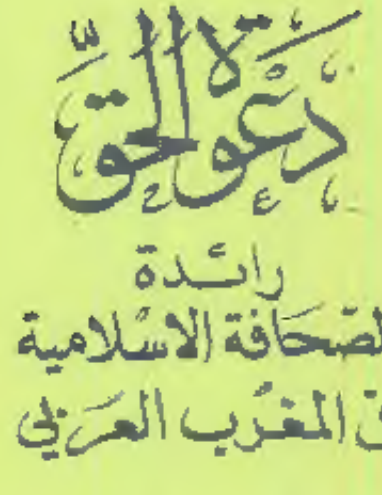 دَعْوَة الحَقّ
رائدة
الصَحَافة الاسْلامية
في المغرب العَرَبي